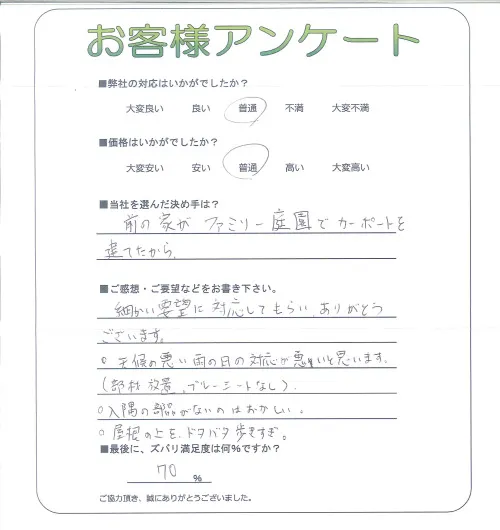 お客様アンケート
■弊社の対応はいかがでしたか？
大変良い 良い 普通 不満 大変不満
■価格はいかがでしたか？
大変安い 安い 普通 高い 大変高い
■当社を選んだ決め手は？
前の家が ファミリー庭園でカーポートを
建てたから。
■ご感想・ご要望などをお書き下さい。
細かい要望に対応してもらい、ありがとう
ございます。
○天候の悪い雨の日の対応が悪いと思います。
(部材放置、ブルーシートなし)．
○入隅の部品がないのはおかしい。
○屋根の上を、ドタバタ歩きすぎ。
■最後に、ズバリ満足度は何%ですか？
70 %
ご協力頂き、誠にありがとうございました。